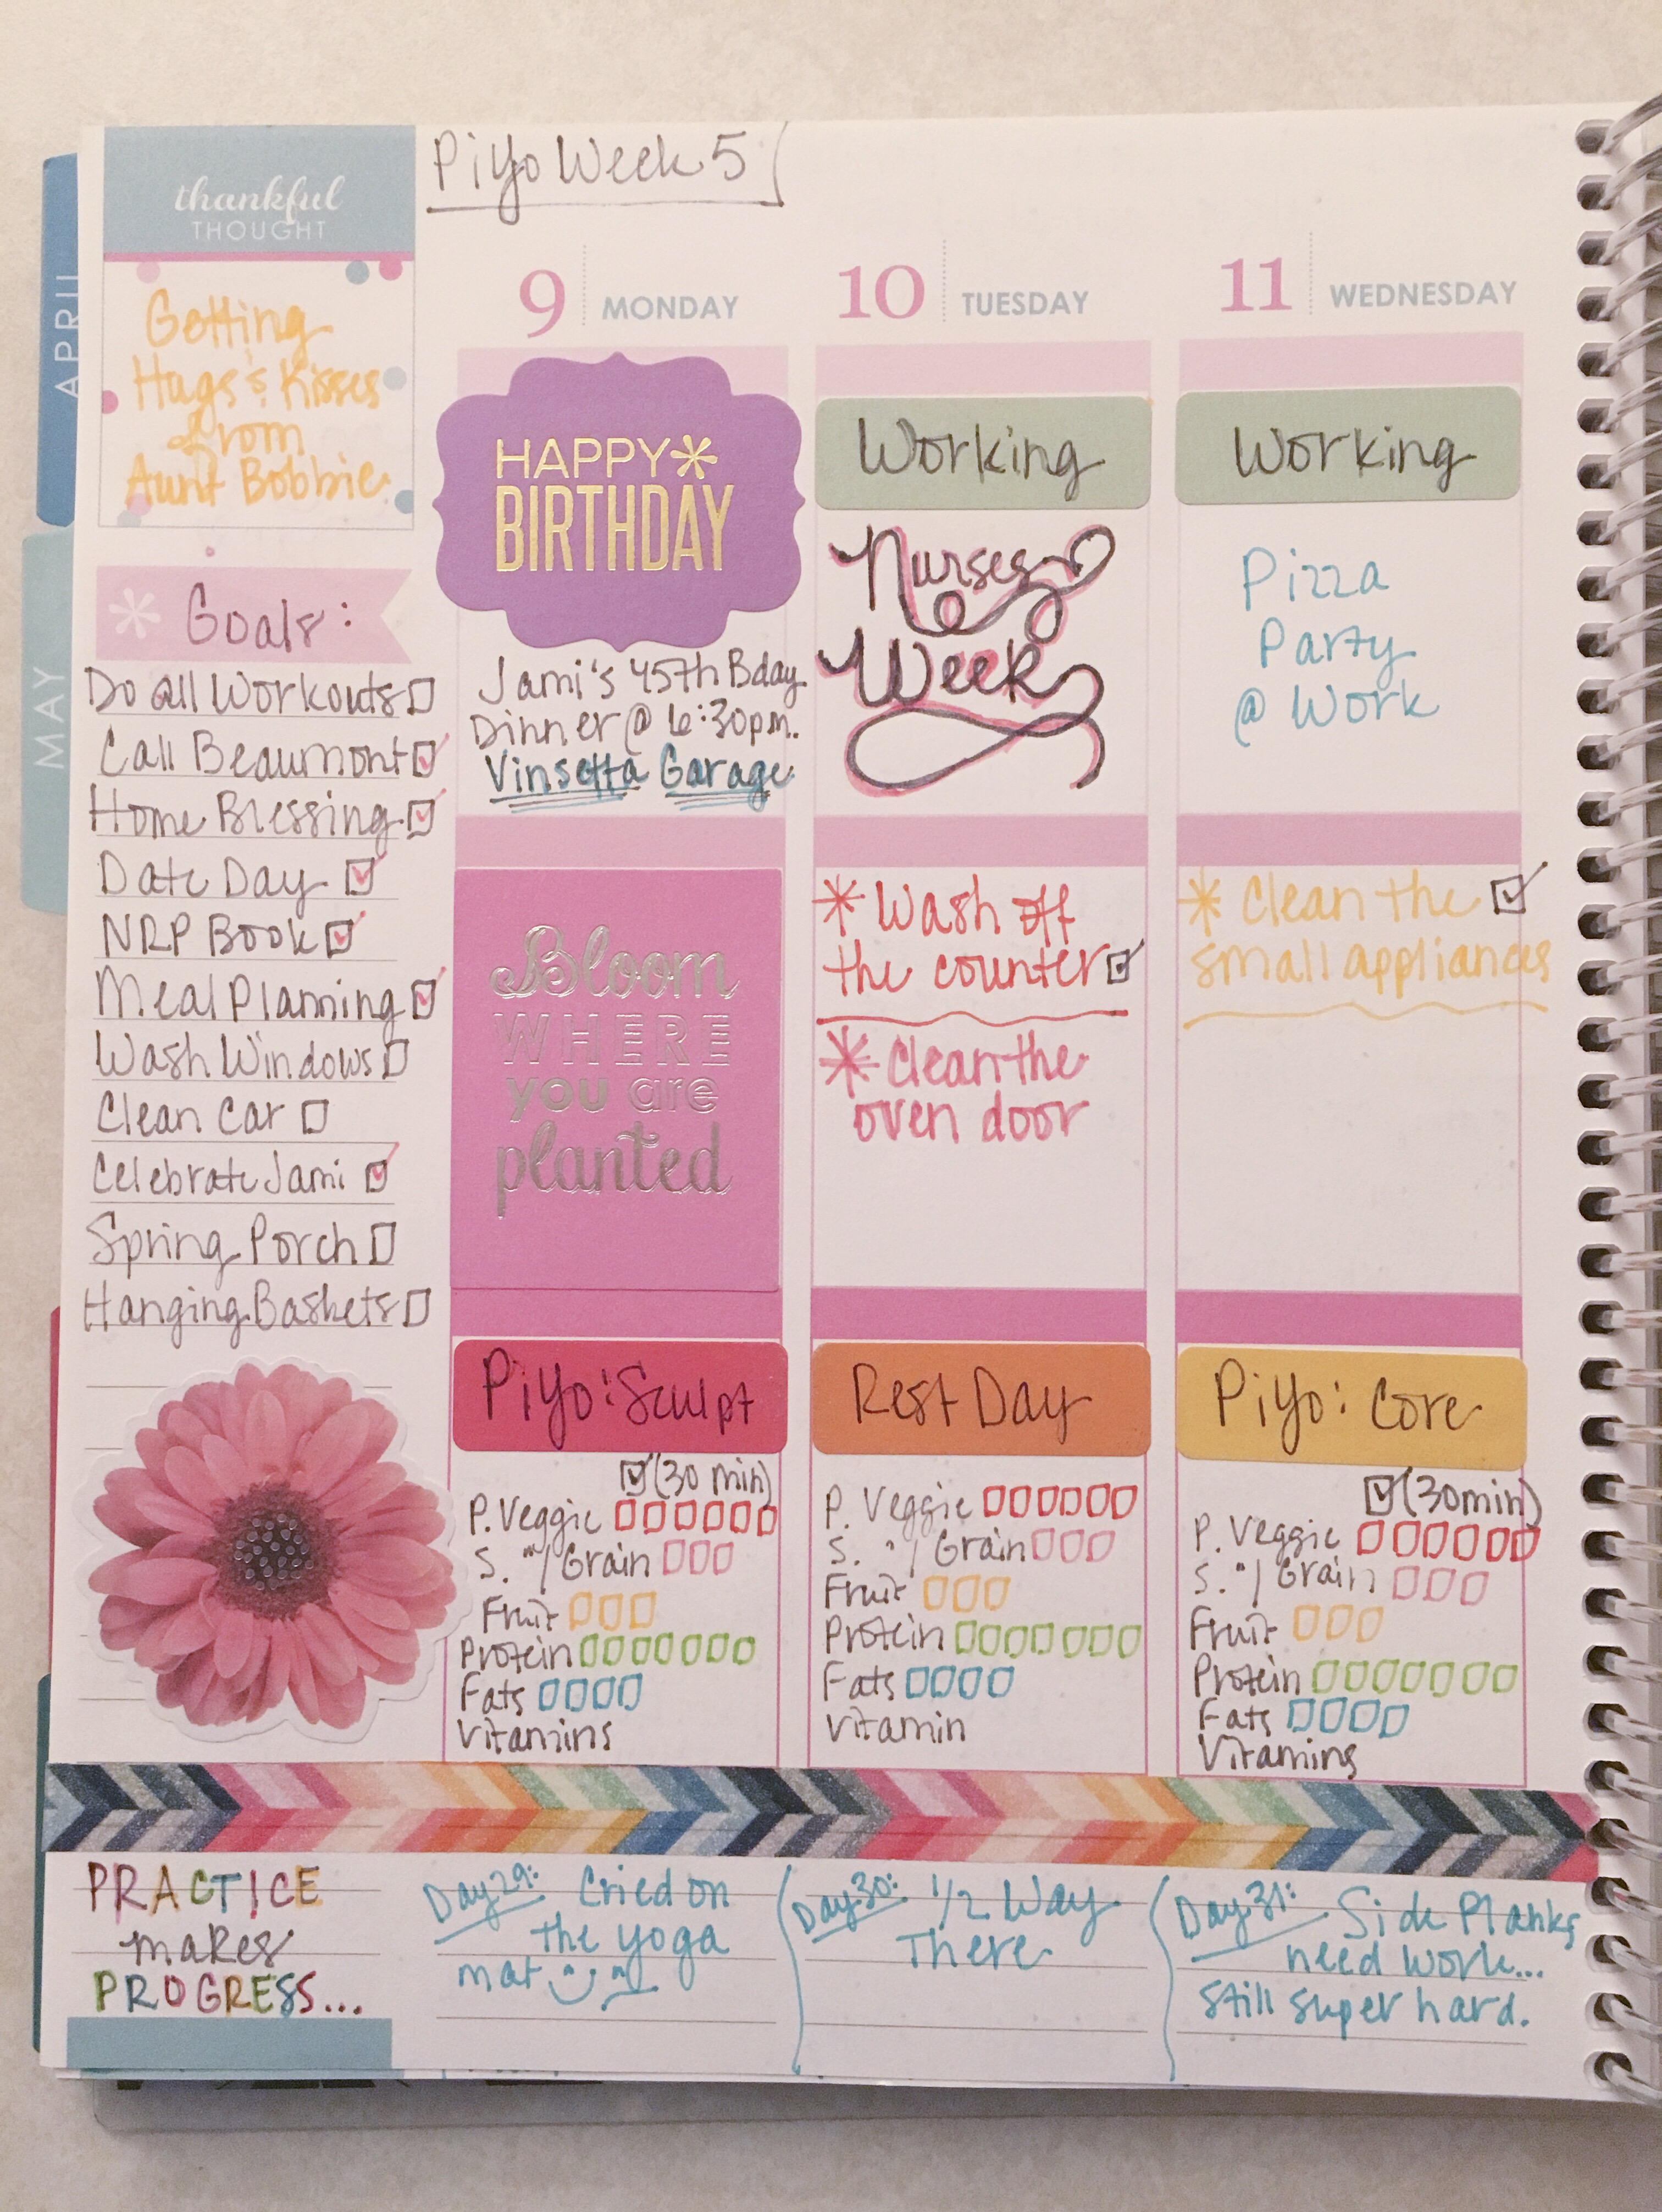 APRIL
MAY
thankful
THOUGHT
Getting
Hugs & Kisses
from
Aunt Bobbie
Goals:
Do all Workouts
Call Beaumont
Home Blessing
Date Day
NRP Book
Meal Planning
Wash Windows
Clean Car
Celebrate Jami
Spring Porch
Hanging Baskets
PiYo Week 5
9 MONDAY
HAPPY*
BIRTHDAY
Jami's 45th Bday
Dinner @ 6:30pm.
Vinsetta Garage
Bloom
WHERE
you are
planted
PiYo: Sculpt
(30 min)
P. Veggie
S. "/Grain
Fruit
Protein
Fats
Vitamins
10 TUESDAY
Working
Nurses
Week
* Wash off
the counter
* Clean the
oven door
Rest Day
P. Veggie
S. "/Grain
Fruit
Protein
Fats
Vitamin
11 WEDNESDAY
Working
Pizza
Party
@ Work
* Clean the
small appliances
PiYo: Core
(30min)
P. Veggie
S. "/Grain
Fruit
Protein
Fats
Vitamins
PRACTICE
makes
PROGRESS...
Day 29: Cried on
the yoga
mat
Day 30: 1/2 Way
There
Day 31: Side Planks
need work...
Still super hard.